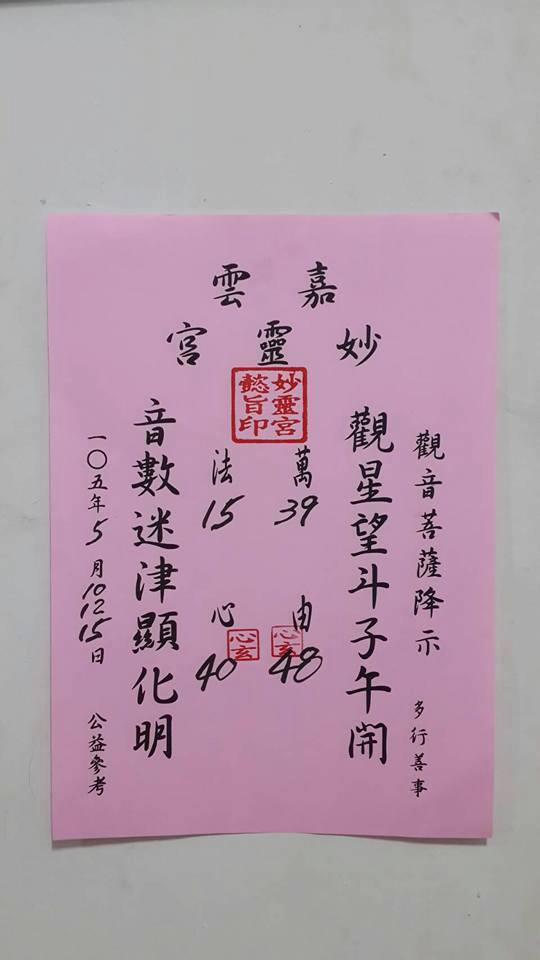 嘉雲
妙靈宮
妙靈宮
懿旨印
觀音菩薩降示 多行善事
觀星望斗子午開
萬 39 由 48
心玄
法 15 心 40
心玄
音數迷津顯化明
一〇五年5月10 12 15日 公益參考